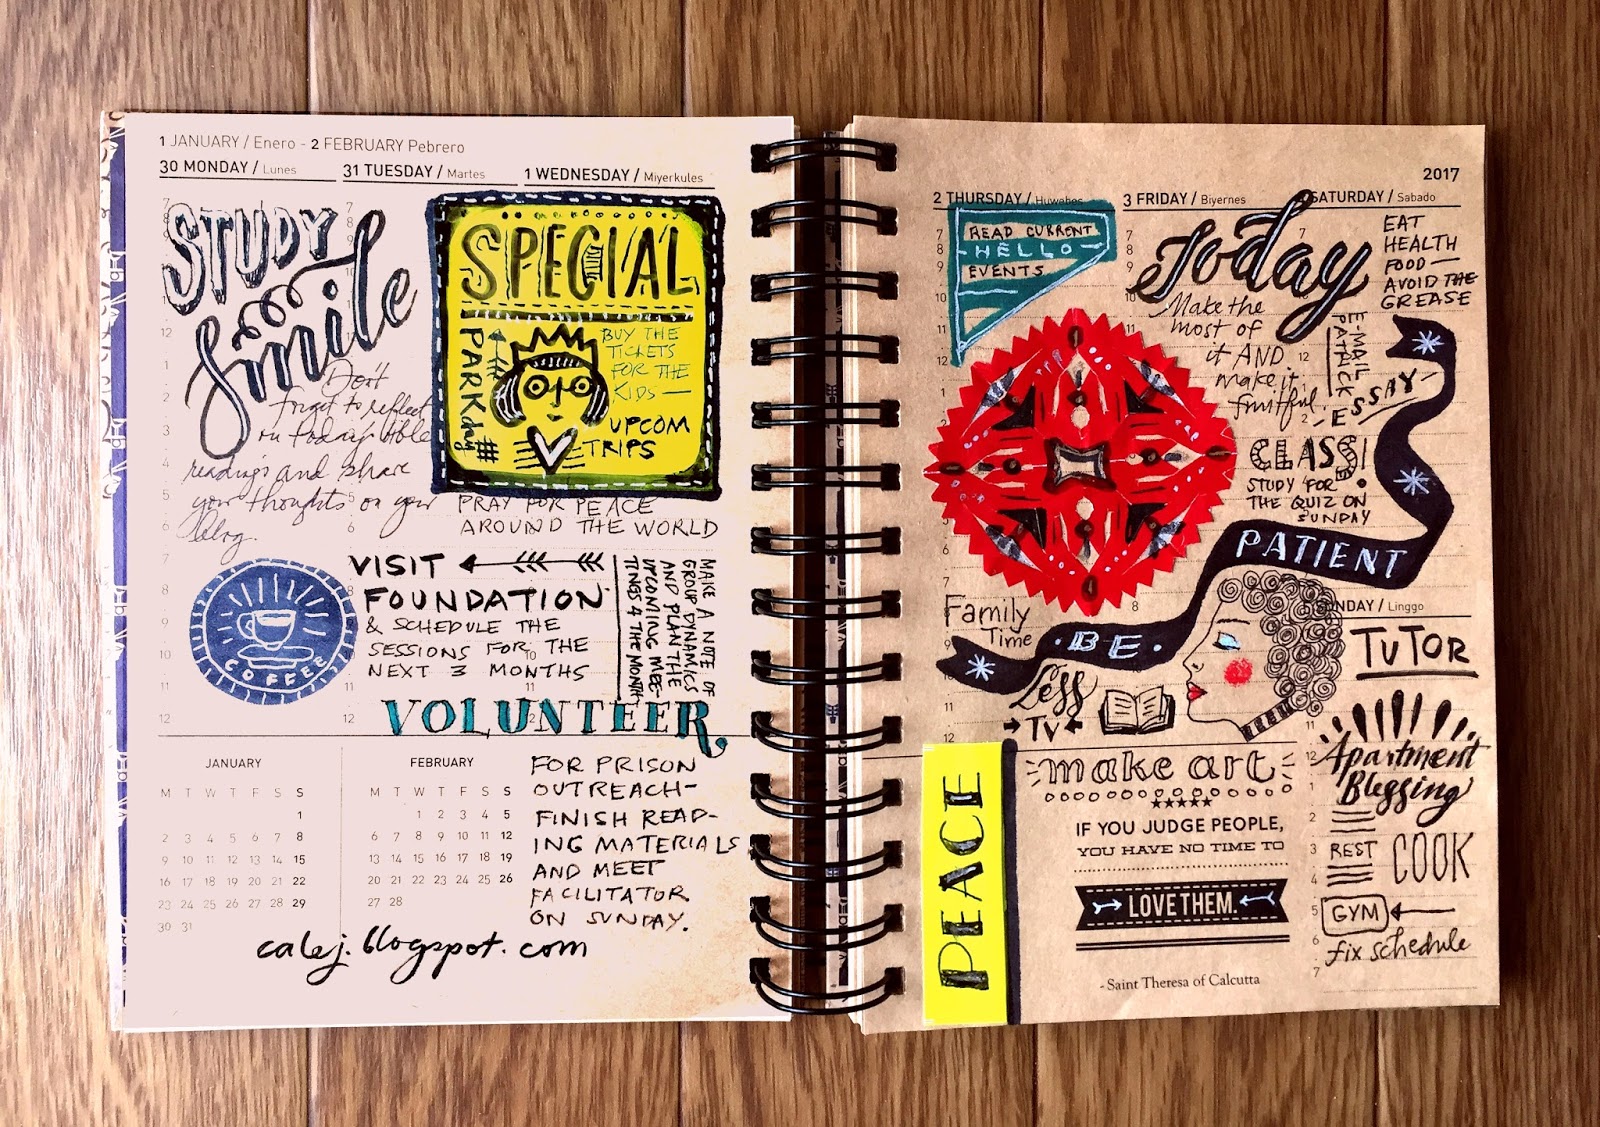 1 JANUARY / Enero - 2 FEBRUARY Pebrero
30 MONDAY / Lunes
31 TUESDAY / Martes
1 WEDNESDAY / Miyerkules
STUDY
Smile
Don't
forget to reflect
on today's bible
readings and share
your thoughts on your
blog.
SPECIAL
PARK day #
BUY THE
TICKETS
FOR THE
KIDS —
UPCOM
TRIPS
PRAY FOR PEACE
AROUND THE WORLD
COFFEE
VISIT
FOUNDATION
& SCHEDULE THE
SESSIONS FOR THE
NEXT 3 MONTHS
MAKE A NOTE OF
GROUP DYNAMICS
AND PLAN THE
UPCOMING MEE-
TINGS 4 THE MONTH
VOLUNTEER
FOR PRISON
OUTREACH-
FINISH READ-
ING MATERIALS
AND MEET
FACILITATOR
ON SUNDAY.
JANUARY
M T W T F S S
1
2 3 4 5 6 7 8
9 10 11 12 13 14 15
16 17 18 19 20 21 22
23 24 25 26 27 28 29
30 31
FEBRUARY
M T W T F S S
1 2 3 4 5
6 7 8 9 10 11 12
13 14 15 16 17 18 19
20 21 22 23 24 25 26
27 28
calej.blogspot.com
2017
2 THURSDAY / Huwebes
3 FRIDAY / Biyernes
SATURDAY / Sabado
READ CURRENT
-HELLO-
EVENTS
Today
Make the
most of
it AND
make it
fruitful.
EAT
HEALTH
FOOD —
AVOID THE
GREASE
E-MAIL
PATRICK
-ESSAY-
CLASS!
STUDY FOR
THE QUIZ ON
SUNDAY
PATIENT
·BE·
Family
Time
Less
TV
SUNDAY / Linggo
TUTOR
Apartment
Blegging
REST
COOK
GYM
fix schedule
PEACE
make art
IF YOU JUDGE PEOPLE,
YOU HAVE NO TIME TO
LOVE THEM.
- Saint Theresa of Calcutta